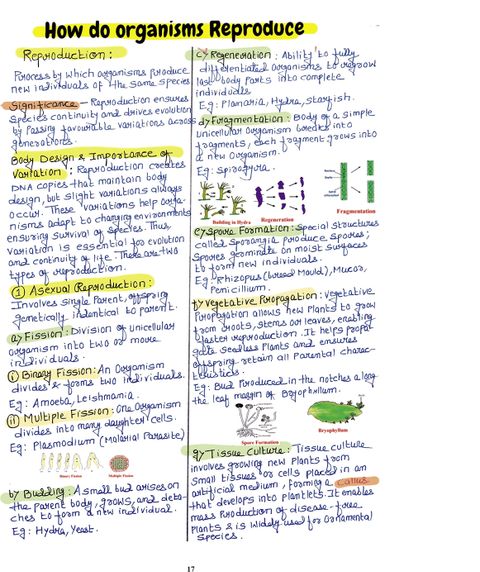 How do organisms Reproduce
Reproduction :
Process by which organisms produce
new individuals of the same species
Significance - Reproduction ensures
Species continuity and drives evolution
by Passing favourable variations across
generations.
Body Design & Importance of
Variation : Reproduction creates
DNA copies that maintain body
design, but slight variations always
occur. These variations help orga-
nisms adapt to changing environments
ensuring survival of species. Thus
variation is essential for evolution
and continuity of life. There are two
types of reproduction.
1) Asexual Reproduction :
Involves Single Parent, offspring
genetically indentical to parent.
a) Fission : Division of unicellular
organism into two or more
individuals.
i) Binary Fission : An Organism
divides & forms two individuals.
Eg : Amoeba, Leishmania.
ii) Multiple Fission : One Organism
divides into many daughter cells.
Eg : Plasmodium (Malarial Parasite)
Binary Fission
Multiple Fission
b) Budding : A small bud arises on
the parent body, grows, and deta-
ches to form a new individual.
Eg : Hydra, Yeast.
c) Regeneration : Ability to fully
differentiated organisms to regrow
lost body parts into complete
individuals
Eg : Planaria, Hydra, Starfish.
d) Fragmentation : Body of a simple
unicellular organism breaks into
fragments, each fragment grows into
a new Organism.
Eg : Spirogyra.
Budding in Hydra
Regeneration
Fragmentation
e) Spore Formation : Special structures
called Sporangia produce Spores;
Spores germinate on moist Surfaces
to form new individuals.
Eg : Rhizopus (bread Mould), Mucor,
Penicillium.
f) Vegetative Propagation : Vegetative
Propagation allows new Plants to grow
from roots, stems or leaves, enabling
faster reproduction. It helps propa-
gate Seedless Plants and ensures
offspring retain all Parental charac-
teristics
Eg : Bud Produced in the notches along
the leaf margin of Bryophyllum.
Spore Formation
Bryophyllum
g) Tissue Culture : Tissue culture
involves growing new Plants from
Small tissues or cells placed in an
artificial medium, forming a callus
that develops into plantlets. It enables
mass Production of disease-free
Plants & is widely used for Ornamental
Species.
17